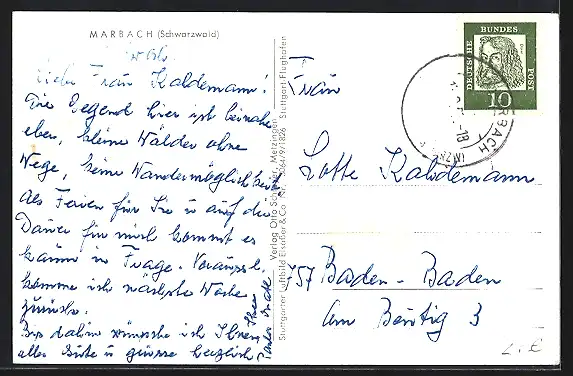 MARBACH (Schwarzwald)
Liebe Frau Kaldemann!
Die Gegend hier ist beinahe
eben, kleine Wälder ohne
Wege, keine Wandermöglichkeit.
Als Ferien für Sie u auf die
Dauer für mich kommt es
kaum in Frage. Vorauss.
komme ich nächste Woche
zurück.
Bis dahin wünsche ich Ihnen
alles Gute u grüsse herzlich
Ihre
Verlag Otto Metzingen
Stuttgarter Luftbild Elsäßer & Co. Nr. 9/1826 Stuttgart-Flughafen
DEUTSCHE BUNDES POST
10
MARBACH
Frau
Lotte Kaldemann
757 Baden-Baden
Am Beutig 3